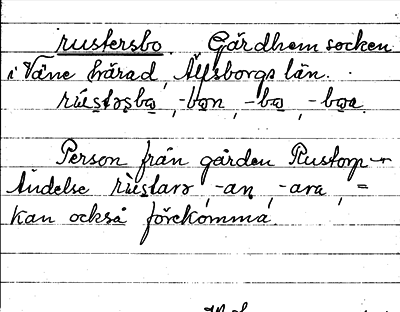 rustersbo. Gärdhem socken
i Väne härad, Älfsborgs län.
rùstəsbo, -bon, -bo, -boa
Person från gården Rustorp –
Ändelse rùstarə, -an, -ara, =
kan också förekomma.